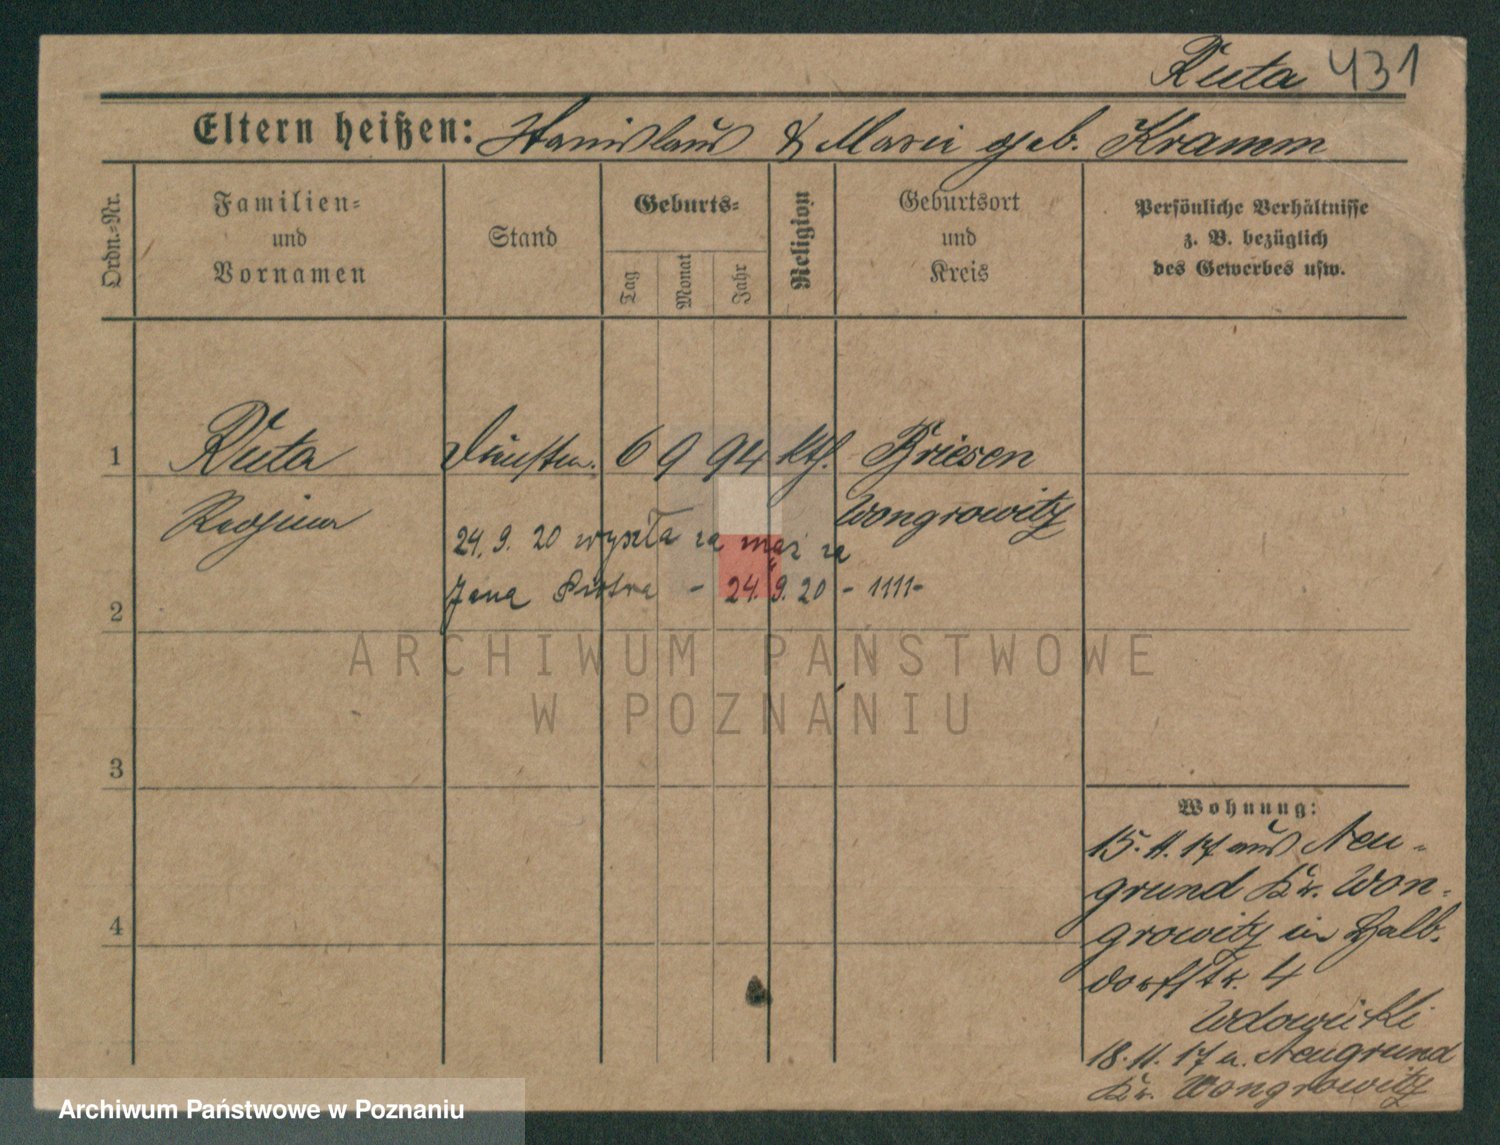 Ruta 431
Eltern heißen: Stanislaus & Marie geb. Kramm
Ordn.-Nr.
Familien-
und
Vornamen
Stand
Geburts-
Tag
Monat
Jahr
Religion
Geburtsort
und
Kreis
Persönliche Verhältnisse
z. B. bezüglich
des Gewerbes usw.
1 Ruta 6 9 94 kth. Briesen
Regina Wongrowitz
24. 9. 20 wyszła za mąż za
Jana Piotra - 24. 9. 20 - 1111-
2
ARCHIWUM PAŃSTWOWE
W POZNANIU
3
Wohnung:
15. 11. 17 aus Neu-
grund Kr. Won-
4 growitz in Halb-
dorfstr. 4
18. 11. 17 n. Neugrund
Kr. Wongrowitz
Archiwum Państwowe w Poznaniu